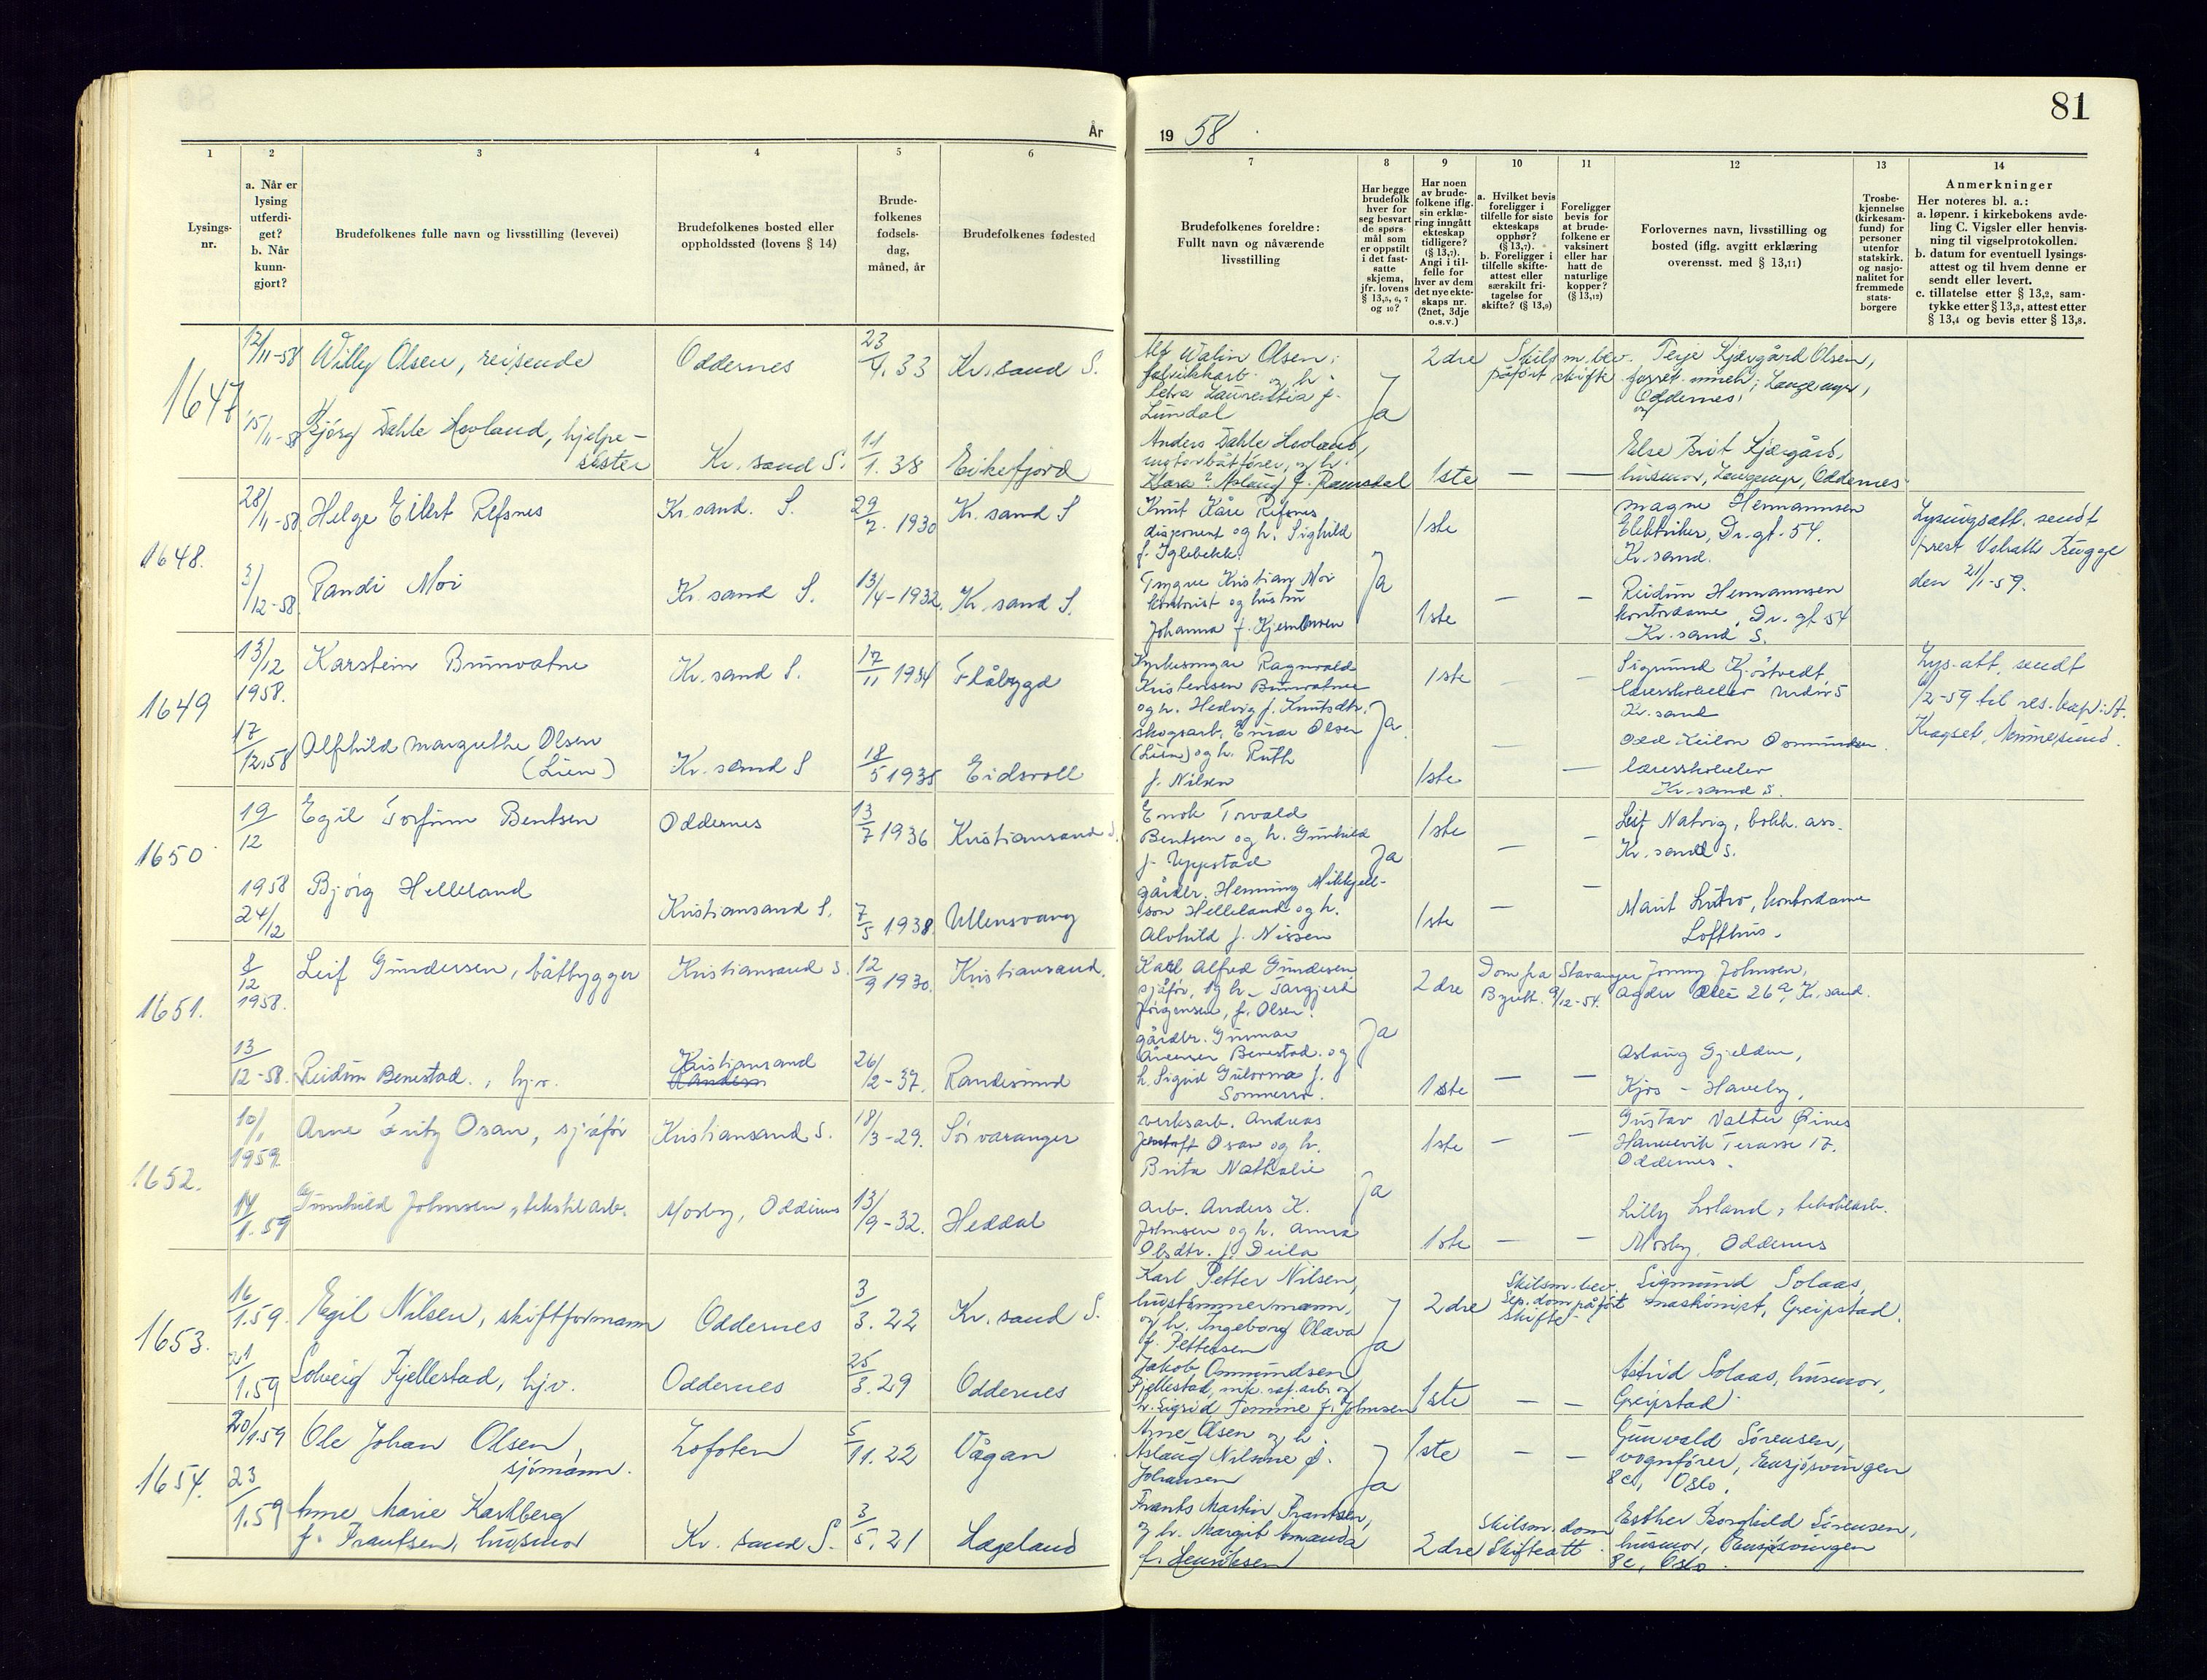 81
År
19 58
1
2
3
4
5
6
7
8
9
10
11
12
13
14
Lysings-
nr.
a. Når er
lysing
utferdi-
get?
b. Når
kunn-
gjort?
Brudefolkenes fulle navn og livsstilling (levevei)
Brudefolkenes bosted eller
oppholdssted (lovens § 14)
Brude-
folkenes
fødsels-
dag,
måned, år
Brudefolkenes fødested
Brudefolkenes foreldre:
Fullt navn og nåværende
livsstilling
Har begge
brudefolk
hver for
seg besvart
de spørs-
mål som
er oppstilt
i det fast-
satte
skjema,
jfr. lovens
§ 13,5, 6, 7
og 10?
Har noen
av brude-
folkene iflg.
sin erklæ-
ring inngått
ekteskap
tidligere?
(§ 13,7).
Angi i til-
felle for
hver av dem
det nye ekte-
skaps nr.
(2net, 3dje
o.s.v.)
a. Hvilket bevis
foreligger i
tilfelle for siste
ekteskaps
opphør?
(§ 13,7).
b. Foreligger i
tilfelle skifte-
attest eller
særskilt fri-
tagelse for
skifte? (§ 13,9)
Foreligger
bevis for
at brude-
folkene er
vaksinert
eller har
hatt de
naturlige
kopper?
(§ 13,12)
Forlovernes navn, livsstilling og
bosted (iflg. avgitt erklæring
overensst. med § 13,11)
Trosbe-
kjennelse
(kirkesam-
fund) for
personer
utenfor
statskirk.
og nasjo-
nalitet for
fremmede
stats-
borgere
Anmerkninger
Her noteres bl. a.:
a. løpenr. i kirkebokens avde-
ling C. Vigsler eller henvis-
ning til vigselprotokollen.
b. datum for eventuell lysings-
attest og til hvem denne er
sendt eller levert.
c. tillatelse etter § 13,2, sam-
tykke etter § 13,3, attest etter
§ 13,4 og bevis etter § 13,8.
1647
12/11-58 Willy Olsen, reisende
Oddernes
23/9.33
Kr.sand S.
Alf Walin Olsen,
fabrikkarb. og h.
Petra Laurentia f.
Lundal
Ja
2dre
Skilsm.bev.
påført skifte
Terje Kjærgård Olsen,
Oddernes,
15/11-58 Bjørg Dahle Hovland, hjelpe-
søster
Kr.sand S.
11/1.38
Eikefjord
Anders Dahle Hovland,
motorbåtfører, og h.
Klara Aslaug f. Ramsdal
1ste — —
Else Brit Kjærgård,
husmor, Oddernes
1648.
28/11-58 Helge Eilert Refsnes
Kr.sand. S.
29/7. 1930
Kr.sand S
Knut Kåre Refsnes
disponent og h. Sighild
f. Iglebekk.
Ja
1ste
Magne Hermannsen
Elektriker, Dr.gt. 54.
Kr.sand.
Lysingsatt. sendt
prest Volrath Bugge
den 21/1-59.
3/12-58 Randi Moi
Kr.sand S.
13/4-1932.
Kr.sand S.
Trygve Kristian Moi
og hustru
Johanna f.
1ste — —
Reidun Hermannsen
kontordame, Dr.gt 54
Kr.sand S.
1649
13/12 1958. Karstein Brunvatne
Kr.sand S.
17/11 1934
Flåbygd
Ragnvald
Kristensen Brunvatne
og h. Hedvig f. Knutsdtr.
Ja.
1ste — —
Sigmund Kjøstvedt,
læreskoleelev
Kr.sand
Lys.att. sendt
1/2-59 til res.kap.
17/12.58 Alfhild Margrethe Olsen
(Lien)
Kr.sand S
18/5 1935
Eidsvoll
skogsarb. Einar Olsen
(Lien) og h. Ruth
f. Nilsen
1ste — —
Odd Osmundsen.
læreskoleelev
Kr.sand S.
1650
19/12 Egil Torfinn Bentsen
Oddernes
13/7 1936
Kristiansand S.
Enok Torvald
Bentsen og h. Gunhild
f. Uppstad
Ja
1ste — —
Leif Natvig, bokh. ass.
Kr.sand S.
1958 24/12 Bjørg Helleland
Kristiansand S.
7/5 1938.
Ullensvang
gårdbr. Henning Mikkjel-
son Helleland og h.
Alvhild f. Nissen
1ste — —
Marit Lutro, kontordame
Lofthus.
1651.
8/12 1958. Leif Gundersen, båtbygger
Kristiansand S.
12/9 1930.
Kristiansand.
Karl Alfred Gundersen
sjåfør, og h. Targjerd
Jørgensen, f. Olsen.
Ja
2dre
Dom fra Stavanger
Byrett. 9/12-54.
Jonny Johnsen,
Agder Allé 26a, Kr.sand.
13/12-58. Reidun Benestad., hjv.
Kristiansand
Randesund
26/2-37.
Randesund
gårdbr. Gunnar
Benestad. og
h. Sigrid f.
1ste — —
Aslaug Gjelden,
Kjos - Haveby,
1652.
10/1 1959 Arne Fritz Osan, sjåfør
Kristiansand S.
18/3-29.
Sør varanger
verksarb. Andreas
Osan og h.
Brita Nathalie
Ja
1ste — —
Gustav Valter
Hannevik Terasse 17.
Oddernes.
14/1.59 Gunhild Johnsen, tekstilarb.
Mosby, Oddernes
13/9-32.
Heddal
arb. Anders K.
Johnsen og h. Anna
Olsdtr. f. Deila
1ste — —
Lilly Loland, tekstilarb.
Mosby, Oddernes
1653.
16/1.59. Egil Nilsen, skiftformann
Oddernes
3/3.22
Kr.sand S.
Karl Petter Nilsen,
hustømmermann,
og h. Ingeborg Olava
f. Pettersen
Ja
2dre
Skilsm.bev.
Sep.dom påført
skifte
Sigmund Solaas,
maskinist, Greipstad.
21/1.59 Solveig Fjellestad, hjv.
Oddernes
25/3.29
Oddernes
Jakob Ommundsen
Fjellestad, nik.raf.arb. og
h. Sigrid Tomine f. Johnsen
1ste — —
Astrid Solaas, husmor,
Greipstad
1654.
20/1.59 Ole Johan Olsen,
sjømann.
Lofoten
5/11.22
Vågan
Arne Olsen og h.
Aslaug Nilsine f.
Johansen
Ja
1ste — —
Gunvald Sørensen,
vognfører, Ensjøsvingen
8c, Oslo.
23/1.59 Anne Marie Karlberg
f. Frantsen, husmor
Kr.sand S.
3/5.21
Lægeland
Frants Martin Frantsen,
og h. Margit Amanda
f. Henriksen
2dre
Skilsm.dom
Skifteatt.
Esther Borghild Sørensen,
husmor, Ensjøsvingen
8c, Oslo.